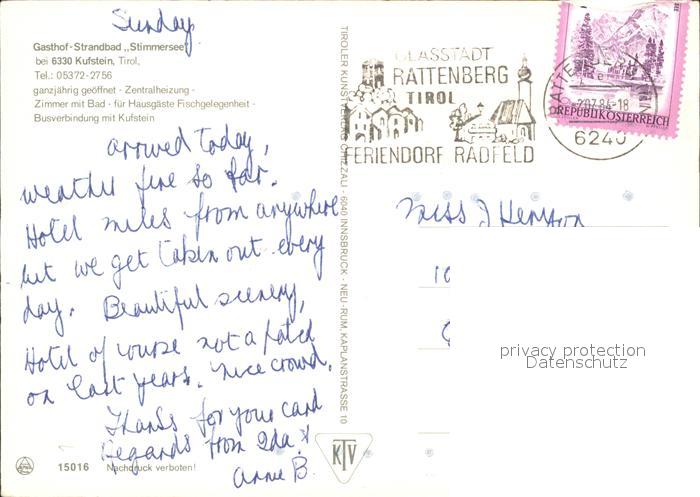 Sunday
Gasthof-Strandbad „Stimmersee"
bei 6330 Kufstein, Tirol,
Tel.: 05372-2756
ganzjährig geöffnet - Zentralheizung -
Zimmer mit Bad - für Hausgäste Fischgelegenheit -
Busverbindung mit Kufstein
arrived today,
weather fine so far.
Hotel miles from anywhere
but we get taken out every
day. Beautiful scenery,
Hotel of course not a patch
on last years. Nice crowd.
Thanks for your card
Regards from Ida &
Annie B.
15016 Nachdruck verboten!
TIROLER KUNSTVERLAG CHIZZALI · 6040 INNSBRUCK · NEU-RUM, KAPLANSTRASSE 10
KTV
GLASSTADT
RATTENBERG
TIROL
FERIENDORF RADFELD
RATTENBERG
84-18
6240
REPUBLIK ÖSTERREICH
Miss J
10
privacy protection
Datenschutz